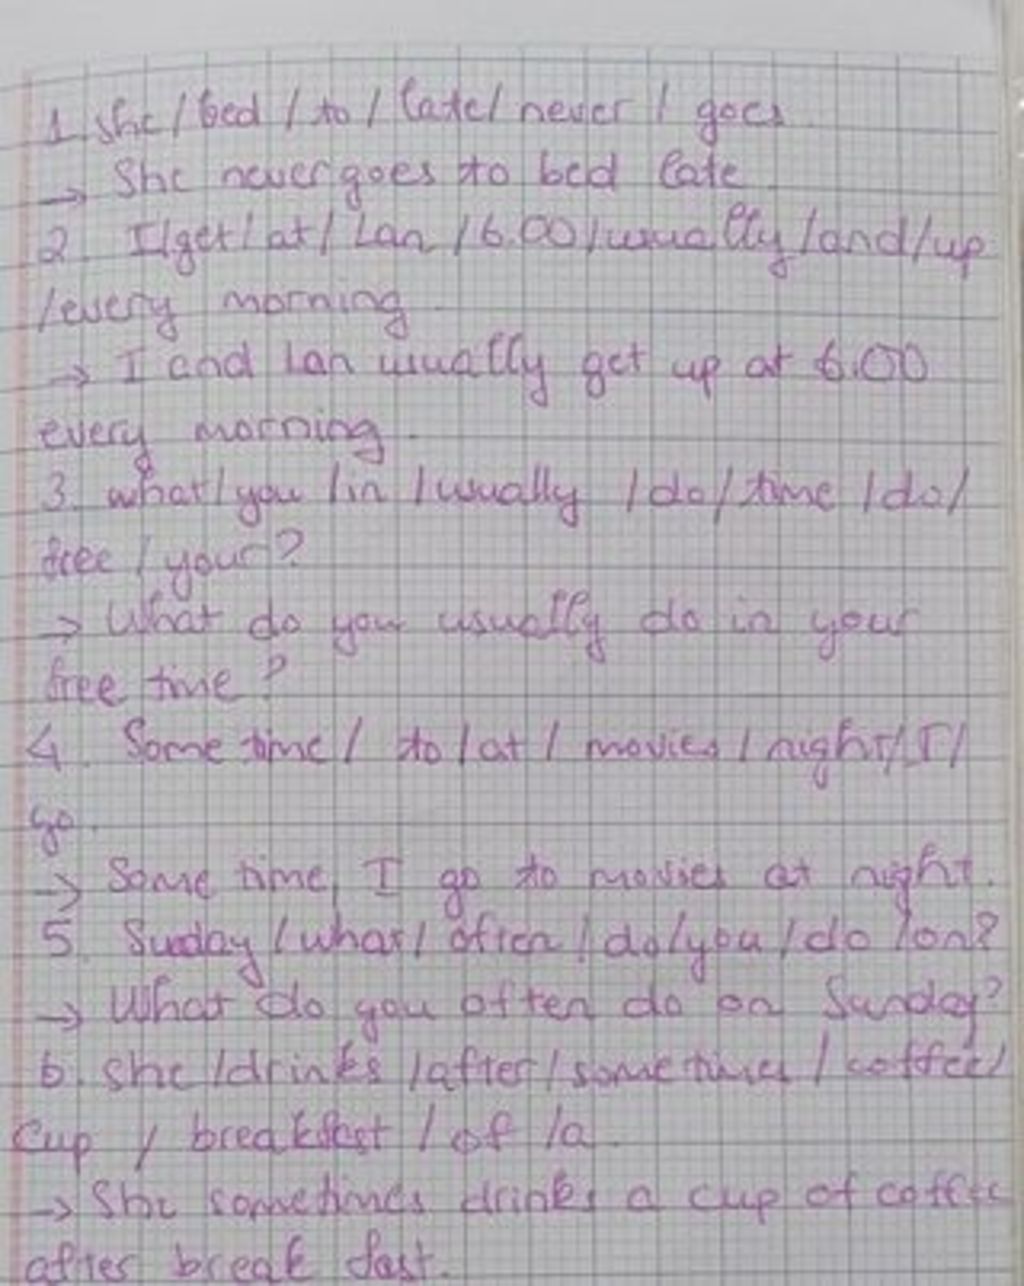 1. She / bed / to / late / never / goes.
→ She never goes to bed late
2. I/get/at/Lan/6.00/usually/and/up
/every morning.
→ I and Lan usually get up at 6.00
every morning.
3. what/you/in/usually/do/time/do/
free/your?
→ What do you usually do in your
free time?
4. Some time / to / at / movies / night/I/
go.
→ Some time, I go to movies at night.
5. Sunday / what / often / do/you / do /on?
→ What do you often do on Sunday?
6. she /drinks /after/sometimes / coffee/
Cup / breakfast / of /a.
→ She sometimes drinks a cup of coffee
after break fast.